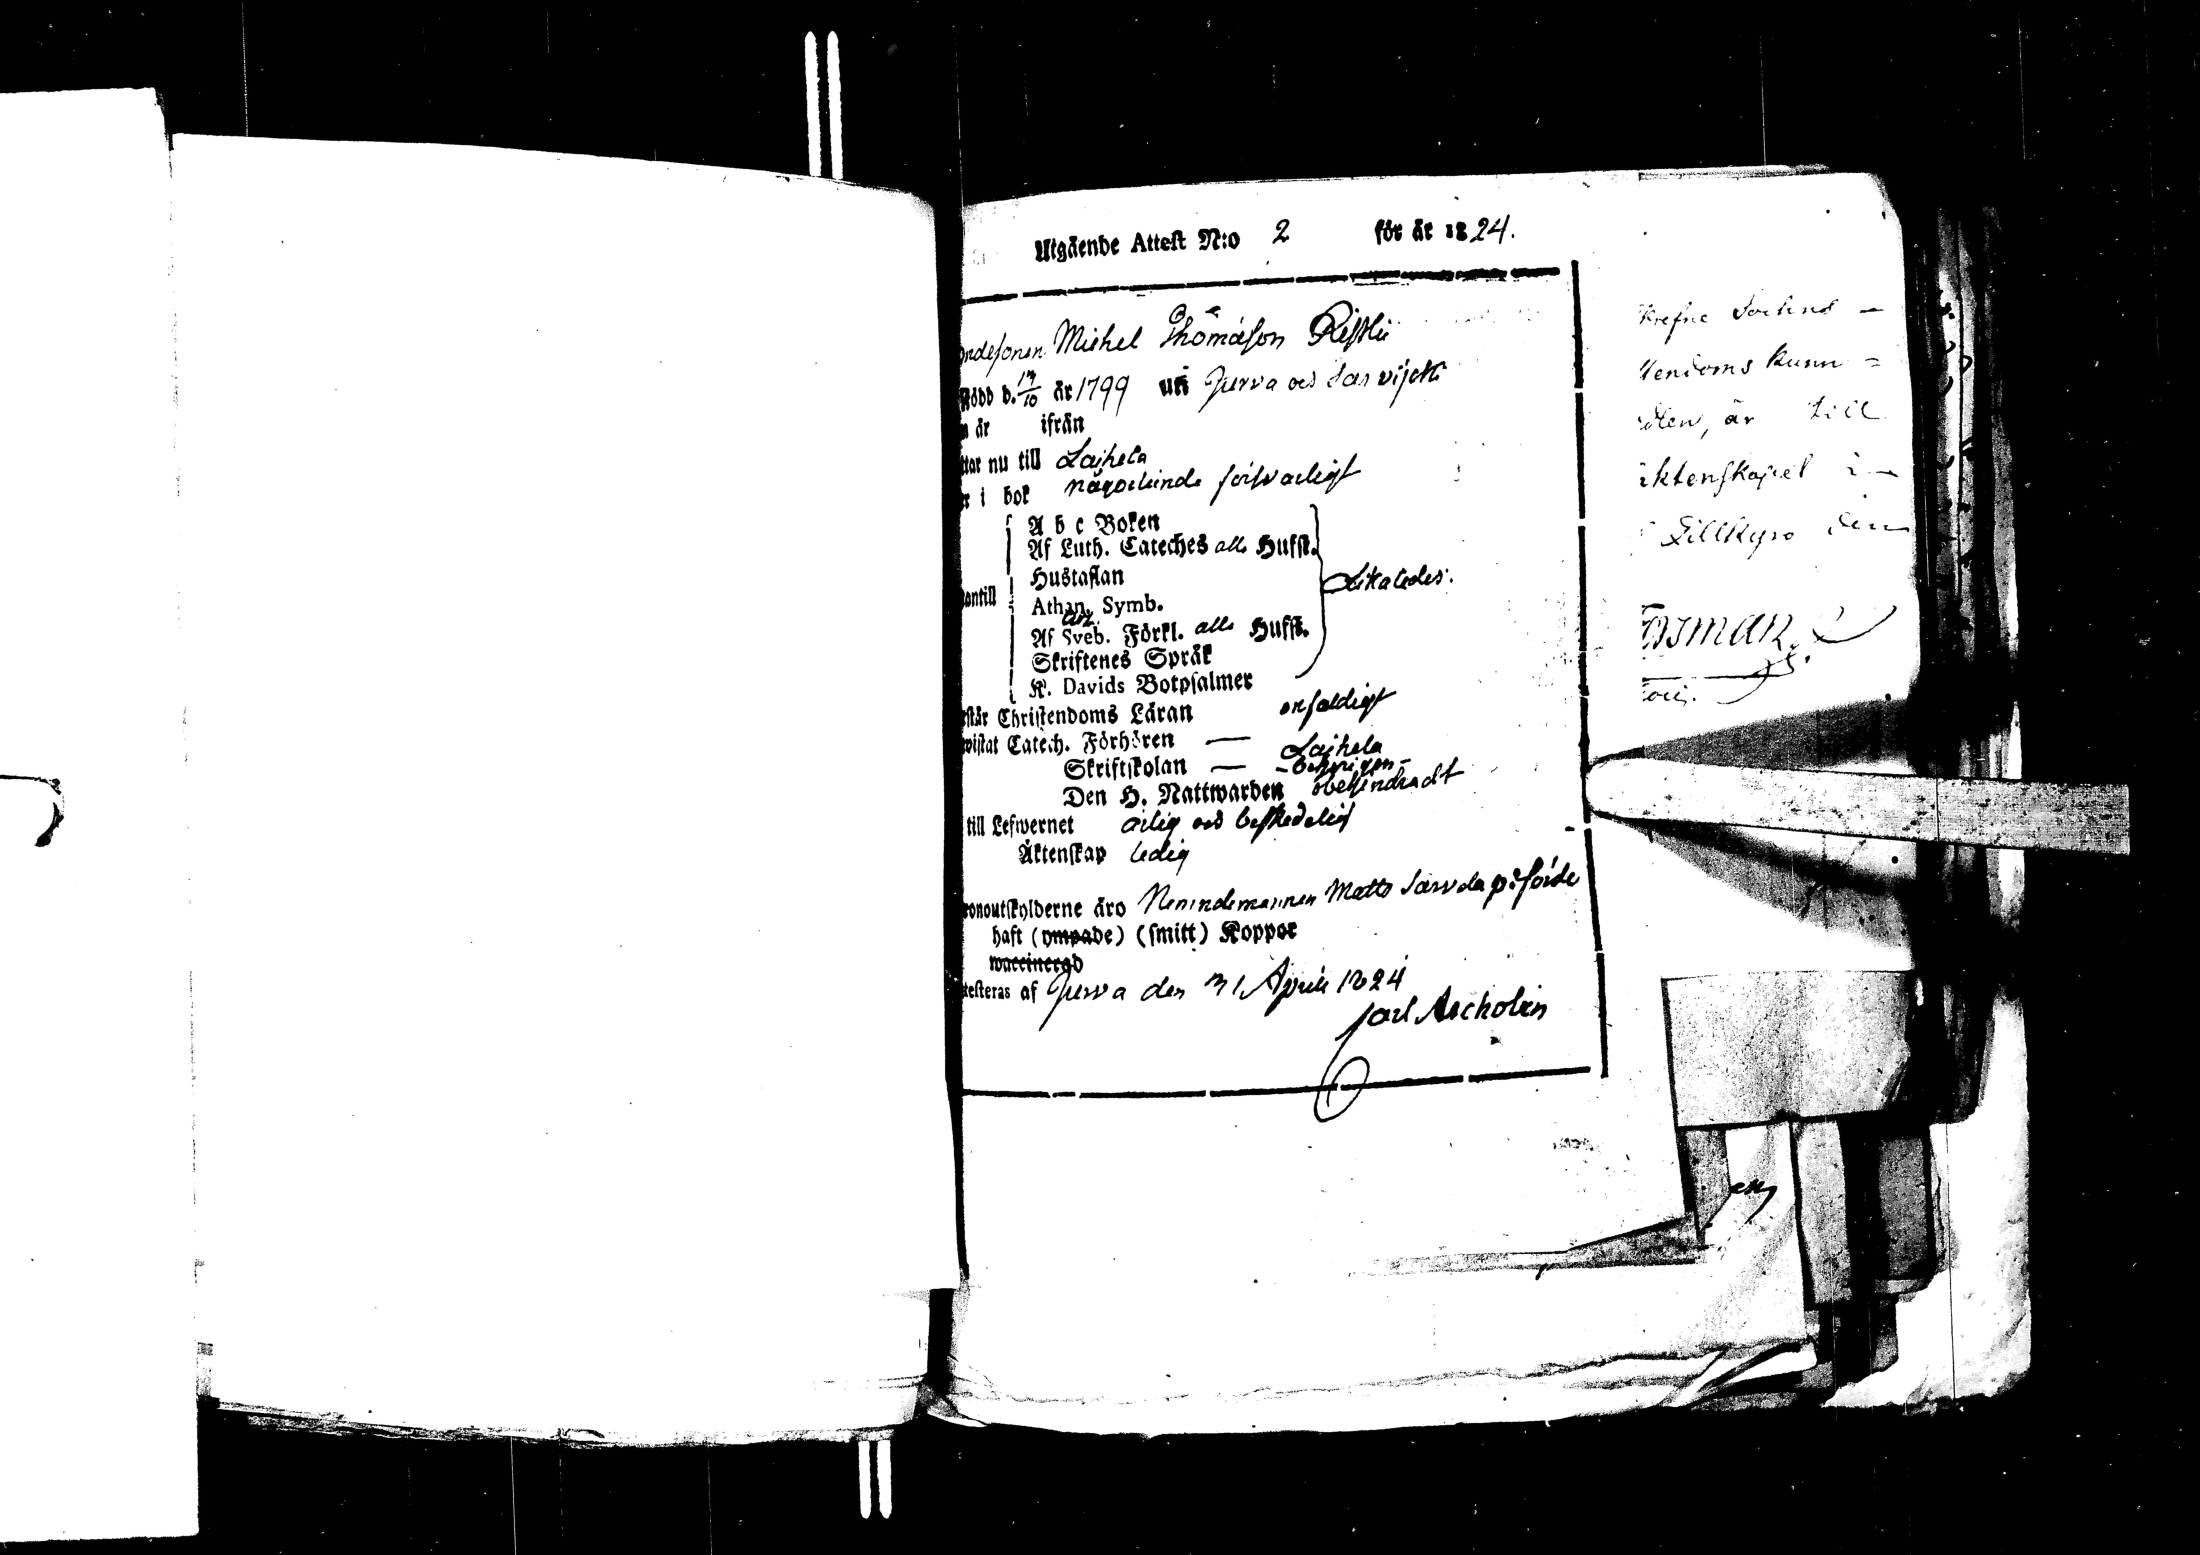 Utgående Attest N:o 2 för år 1824.
ondesonen Michel Thomasson Ristli
Född d. 17/10 år 1799 uti Jurva och Särvijoki
n år ifrån
ttar nu till Laihela
r i bok någorlunda försvarligt
A b c Boken
Af Luth. Cateches alla Hufst.
Hustaflan
antill Athan. Symb. Likaledes.
Af Sveb. Förkl. alla Hufst.
Skriftenes Språk
K. Davids Botpsalmer
rstår Christendoms Läran enfaldigt
wistat Catech. Förhören — Laihela
Skriftskolan — - behörigen -
Den H. Nattwarden obehindradt
till Lefwernet ärlig och beskedelig
Äktenskap ledig
ronoutskylderne äro Nemndemannen Matts Särvela påförde
haft (ympade) (smitt) Koppor
waccinerad
testeras af Jurva den 31 April 1824
Carl Archolin
skrefne Sockens -
stendoms kunn =
är till
äktenskapet i
Lillkyro den